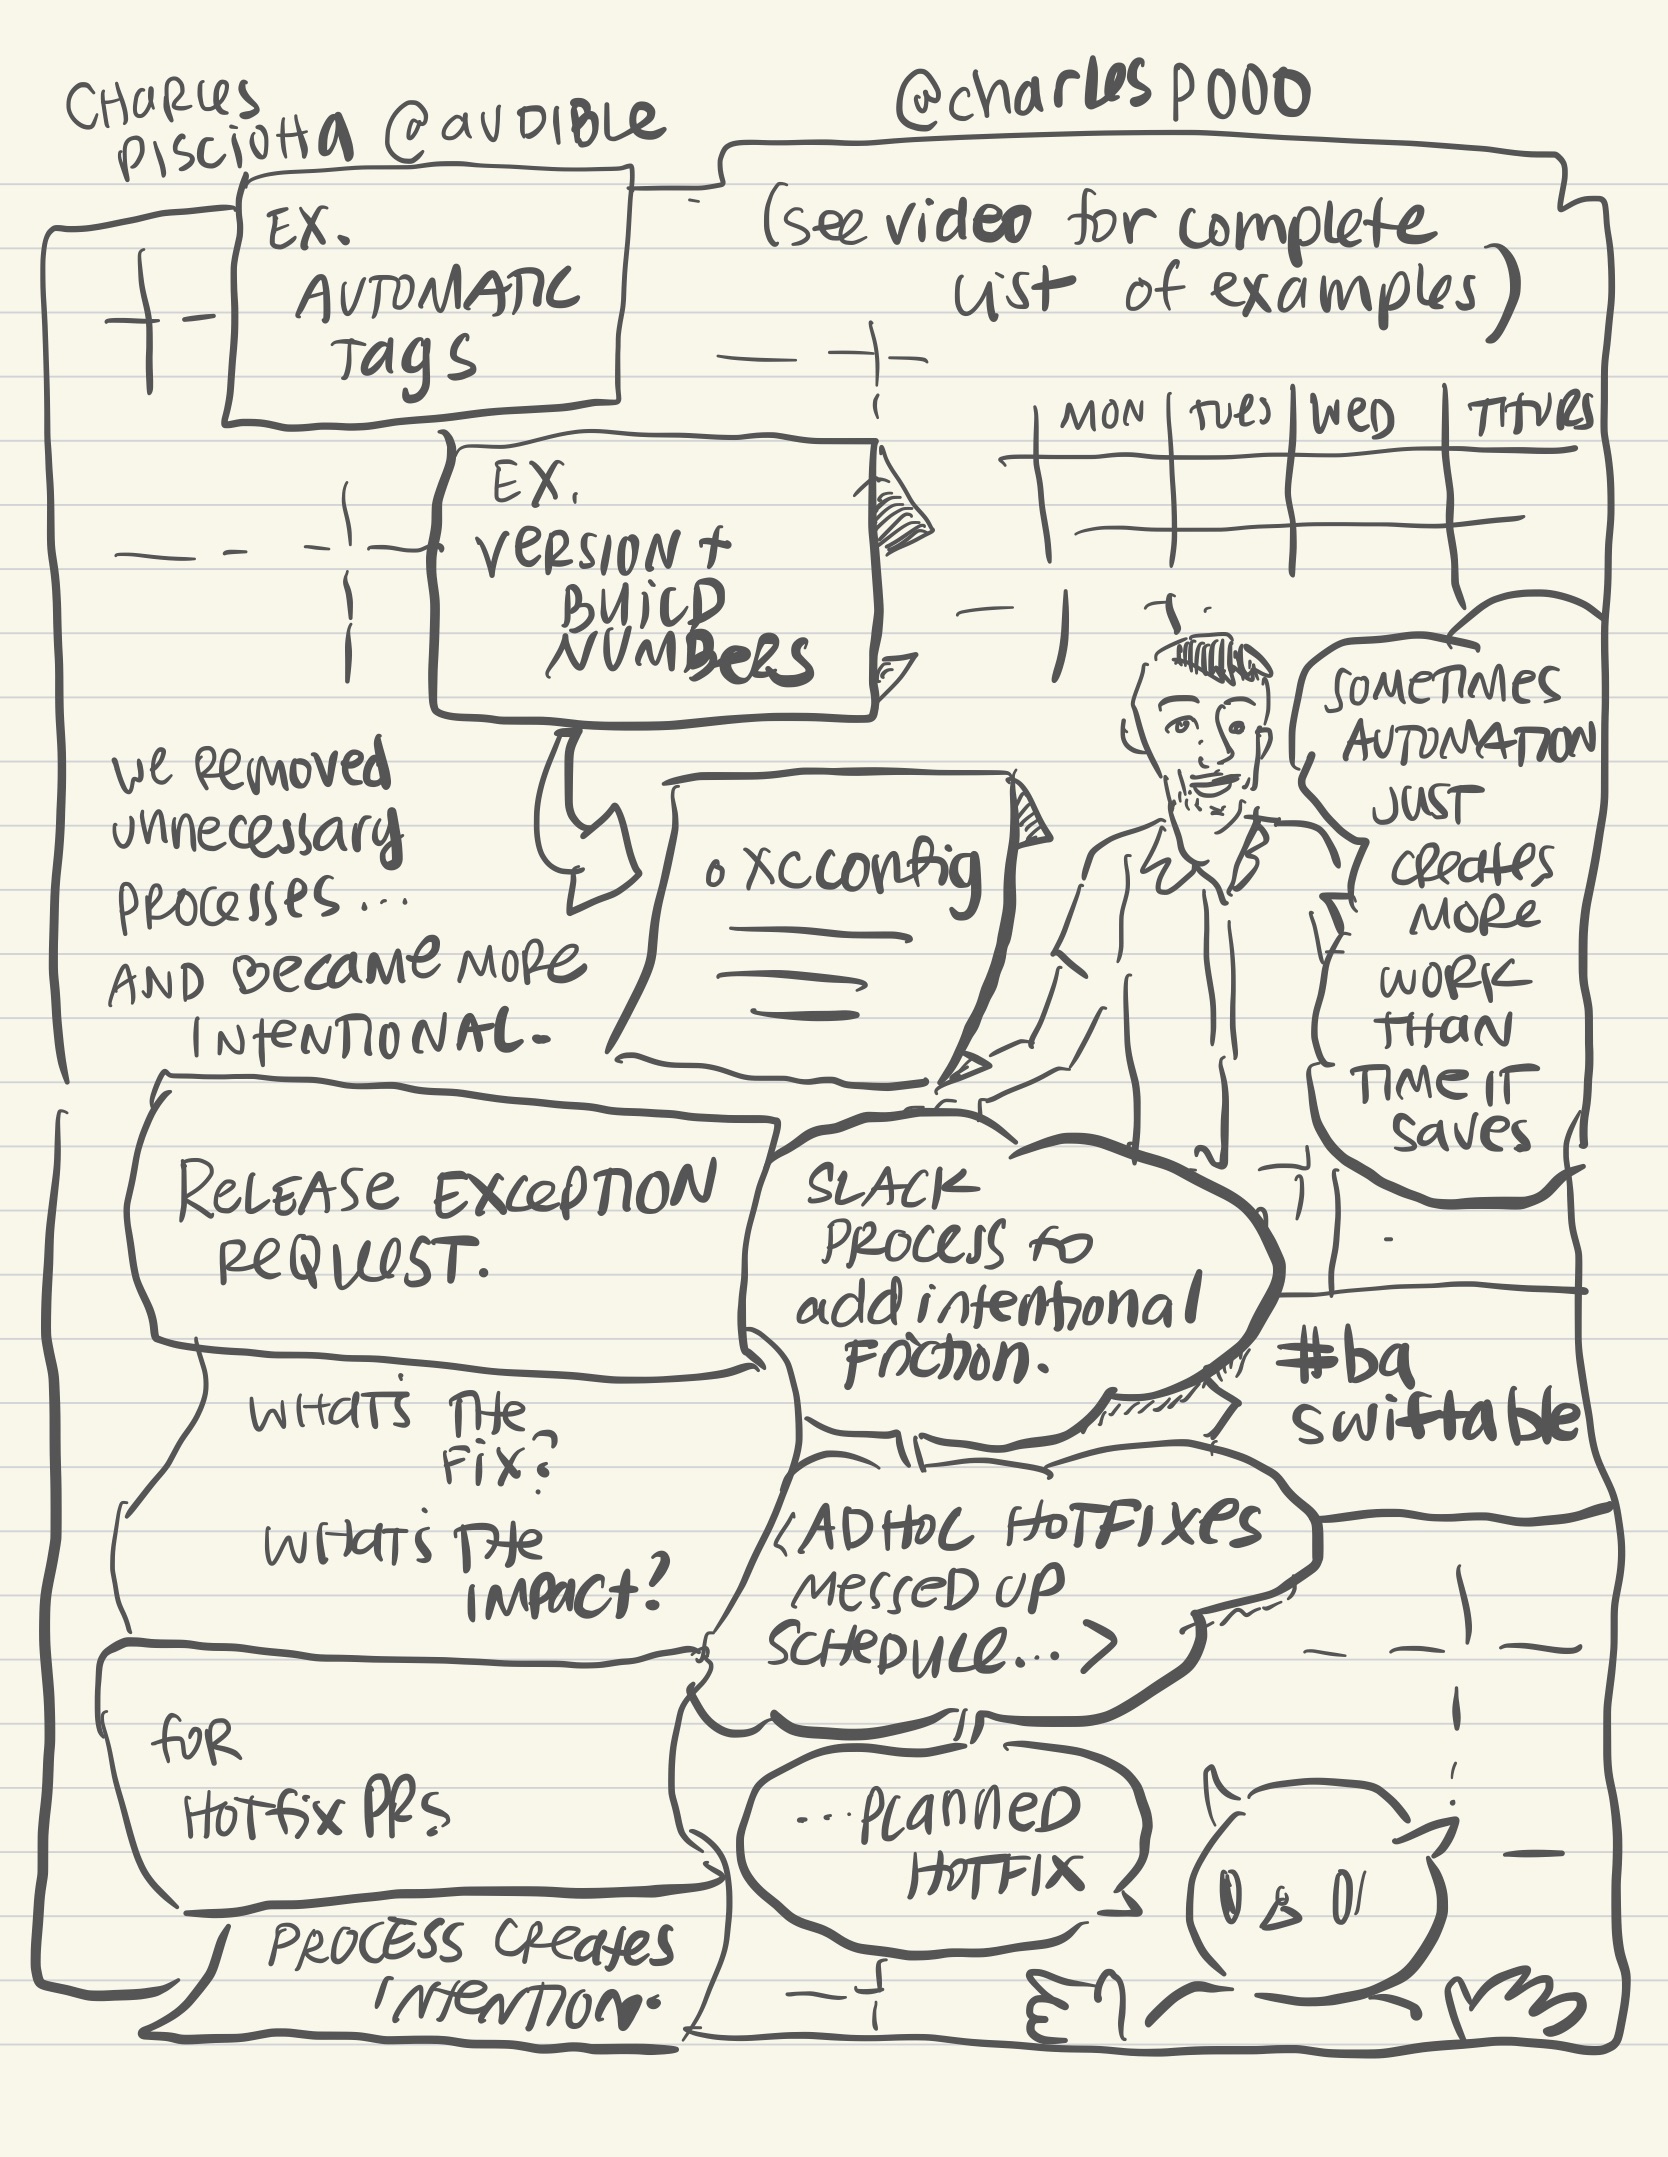 CHARLES
PISCIOTTA @AUDIBLE
@charlesp000
EX.
AUTOMATIC
Tags
(see video for complete
list of examples)
MON TUES WED THURS
EX.
VERSION +
BUILD
NUMBERS
We Removed
unnecessary
PROCESSES...
AND Became MORE
INTENTIONAL.
. XCConfig
SOMETIMES
AUTOMATION
JUST
creates
MORE
WORK
THAN
TIME IT
Saves
RELEASE EXCEPTION
REQUEST.
SLACK
PROCESS to
add intentional
Friction.
#ba
swiftable
WHAT'S THE
FIX?
WHAT'S THE
IMPACT?
<ADHOC HOTFIXES
MESSED UP
SCHEDULE...>
for
HOTfix PRs
...PLANNED
HOTFIX
PROCESS Creates
INTENTION.